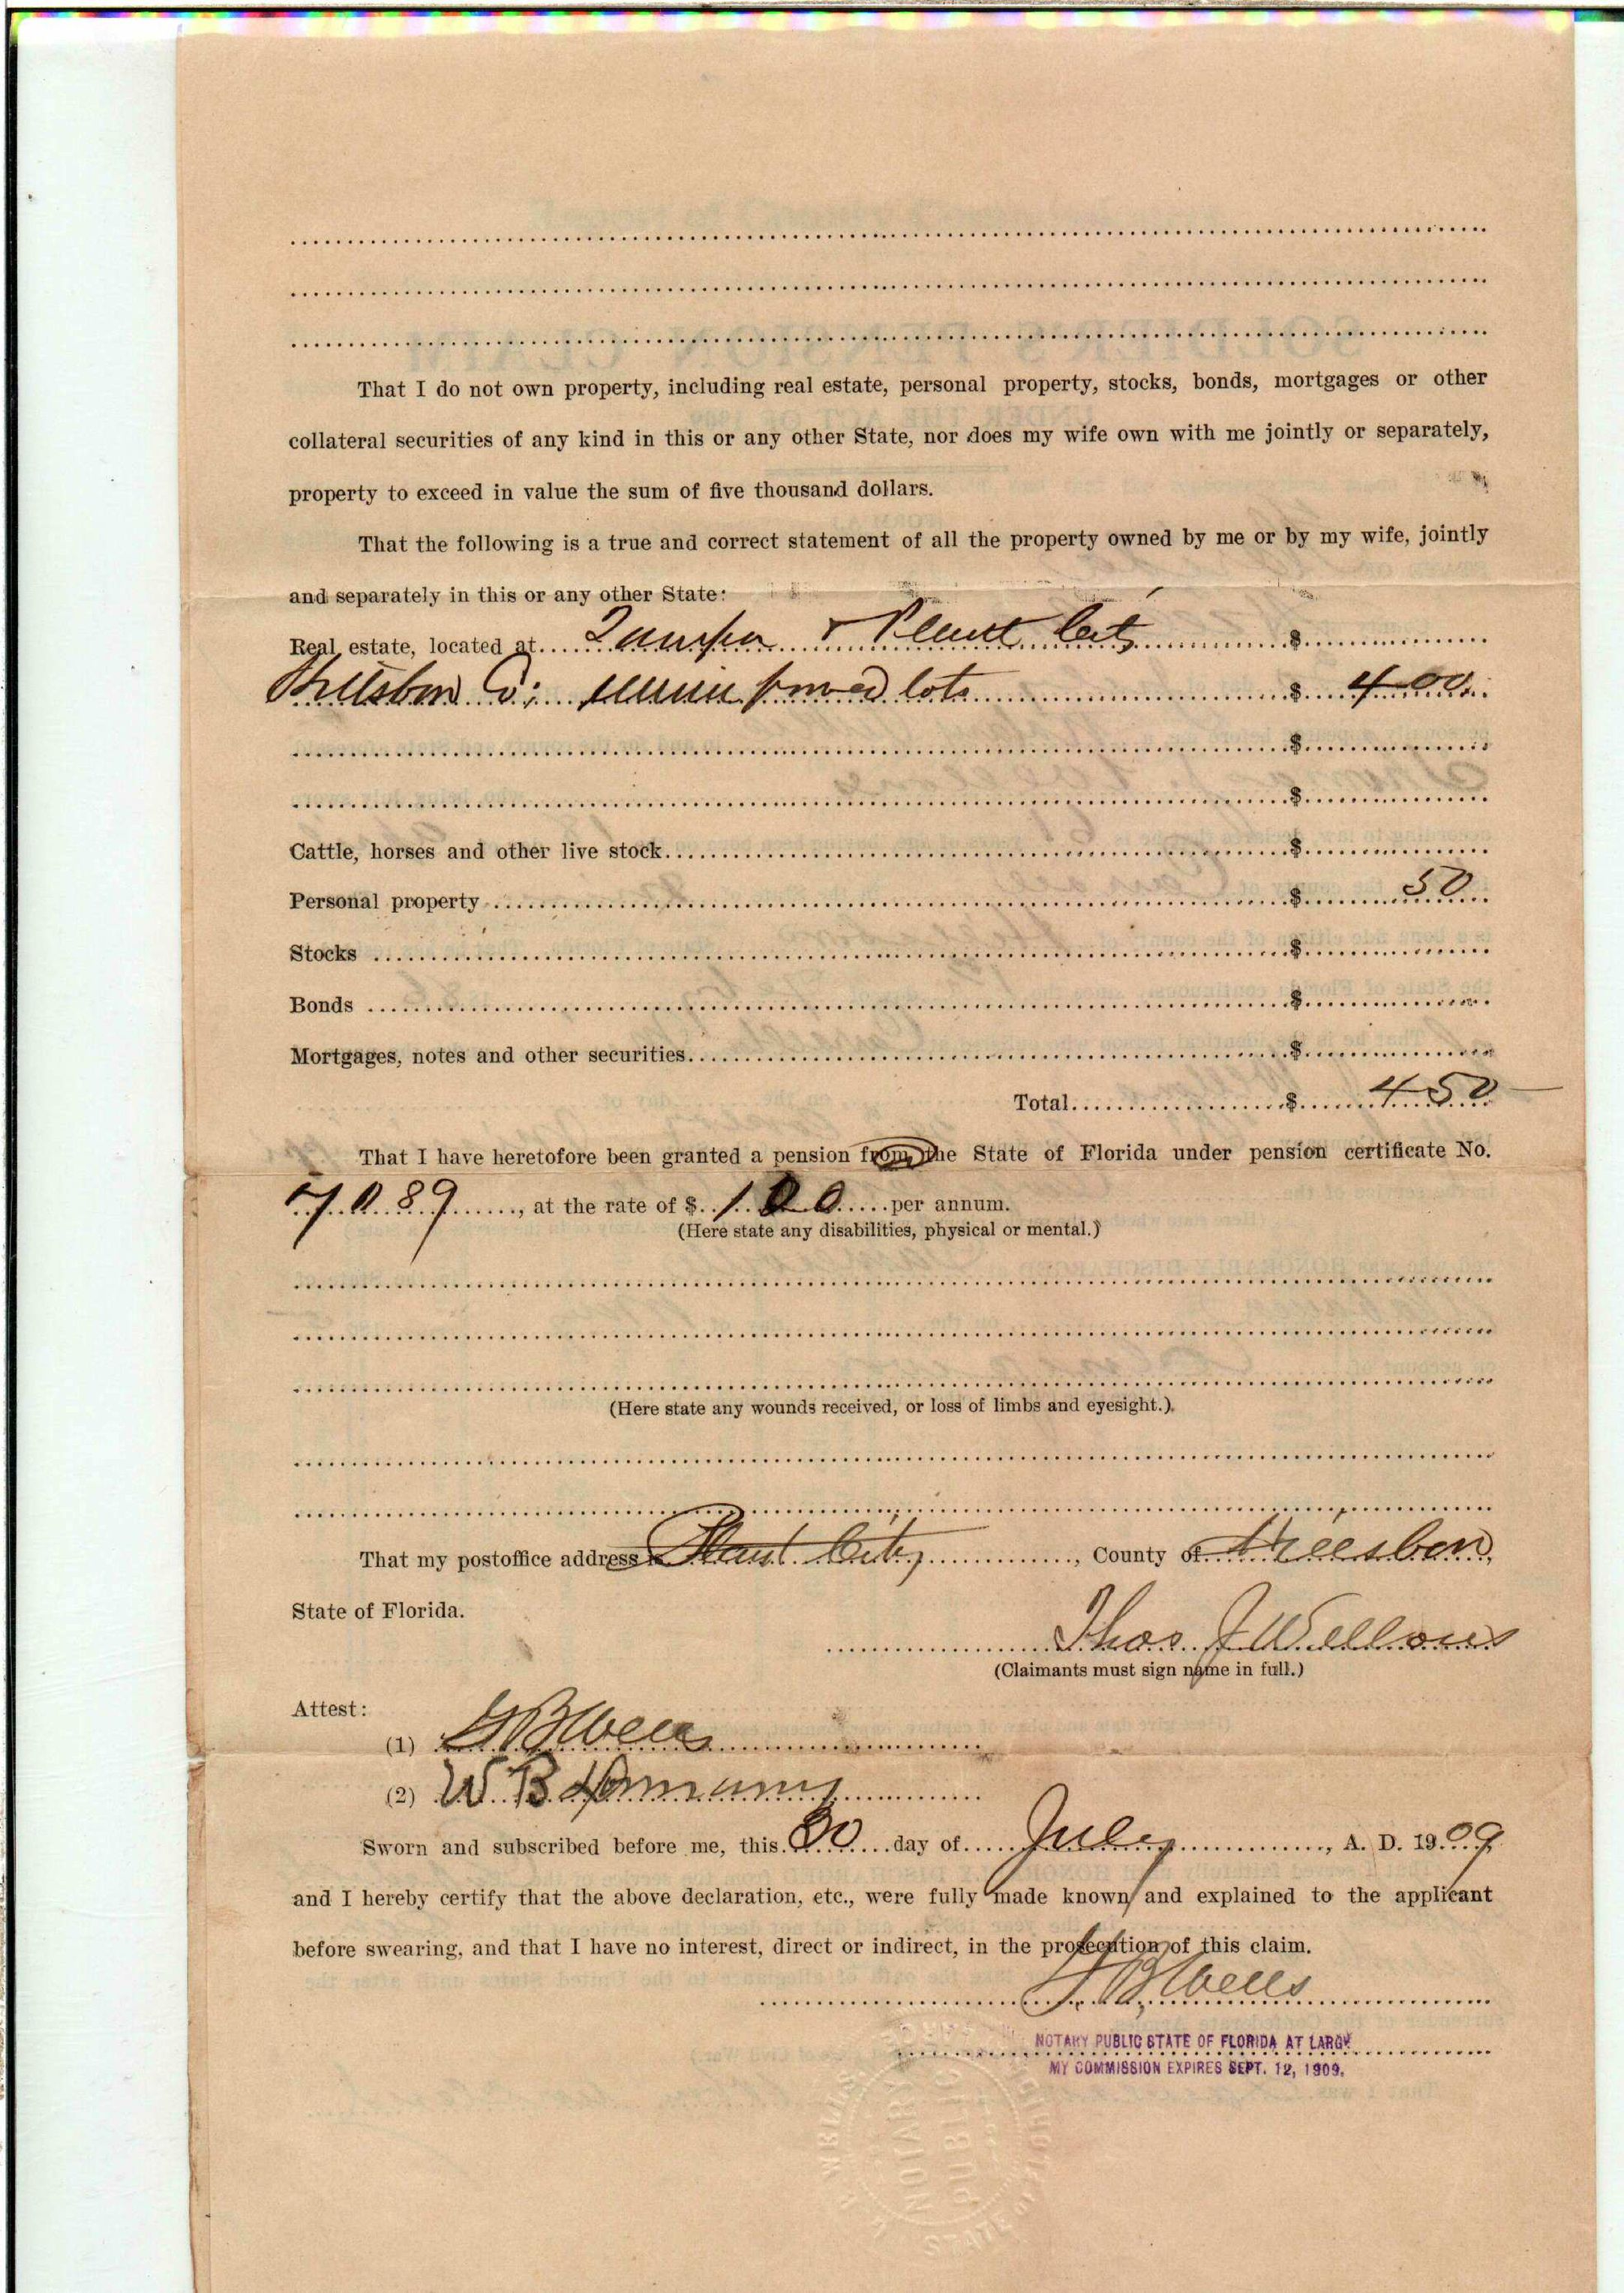 That I do not own property, including real estate, personal property, stocks, bonds, mortgages or other
collateral securities of any kind in this or any other State, nor does my wife own with me jointly or separately,
property to exceed in value the sum of five thousand dollars.
That the following is a true and correct statement of all the property owned by me or by my wife, jointly
and separately in this or any other State:
Real estate, located at Tampa & Plant City $
Hillsboro Co; unimproved lots $ 400
$
$
Cattle, horses and other live stock $
Personal property $ 50
Stocks $
Bonds $
Mortgages, notes and other securities $
Total $ 450
That I have heretofore been granted a pension from the State of Florida under pension certificate No.
7089, at the rate of $ 100 per annum.
(Here state any disabilities, physical or mental.)
(Here state any wounds received, or loss of limbs and eyesight.)
That my postoffice address is Plant City, County of Hillsboro,
State of Florida.
Thos J Wellons
(Claimants must sign name in full.)
Attest:
(1) Wells
(2) W B
Sworn and subscribed before me, this 30 day of July, A. D. 1909
and I hereby certify that the above declaration, etc., were fully made known and explained to the applicant
before swearing, and that I have no interest, direct or indirect, in the prosecution of this claim.
B Wells
NOTARY PUBLIC STATE OF FLORIDA AT LARGE
MY COMMISSION EXPIRES SEPT. 12, 1909.
NOTARY
PUBLIC